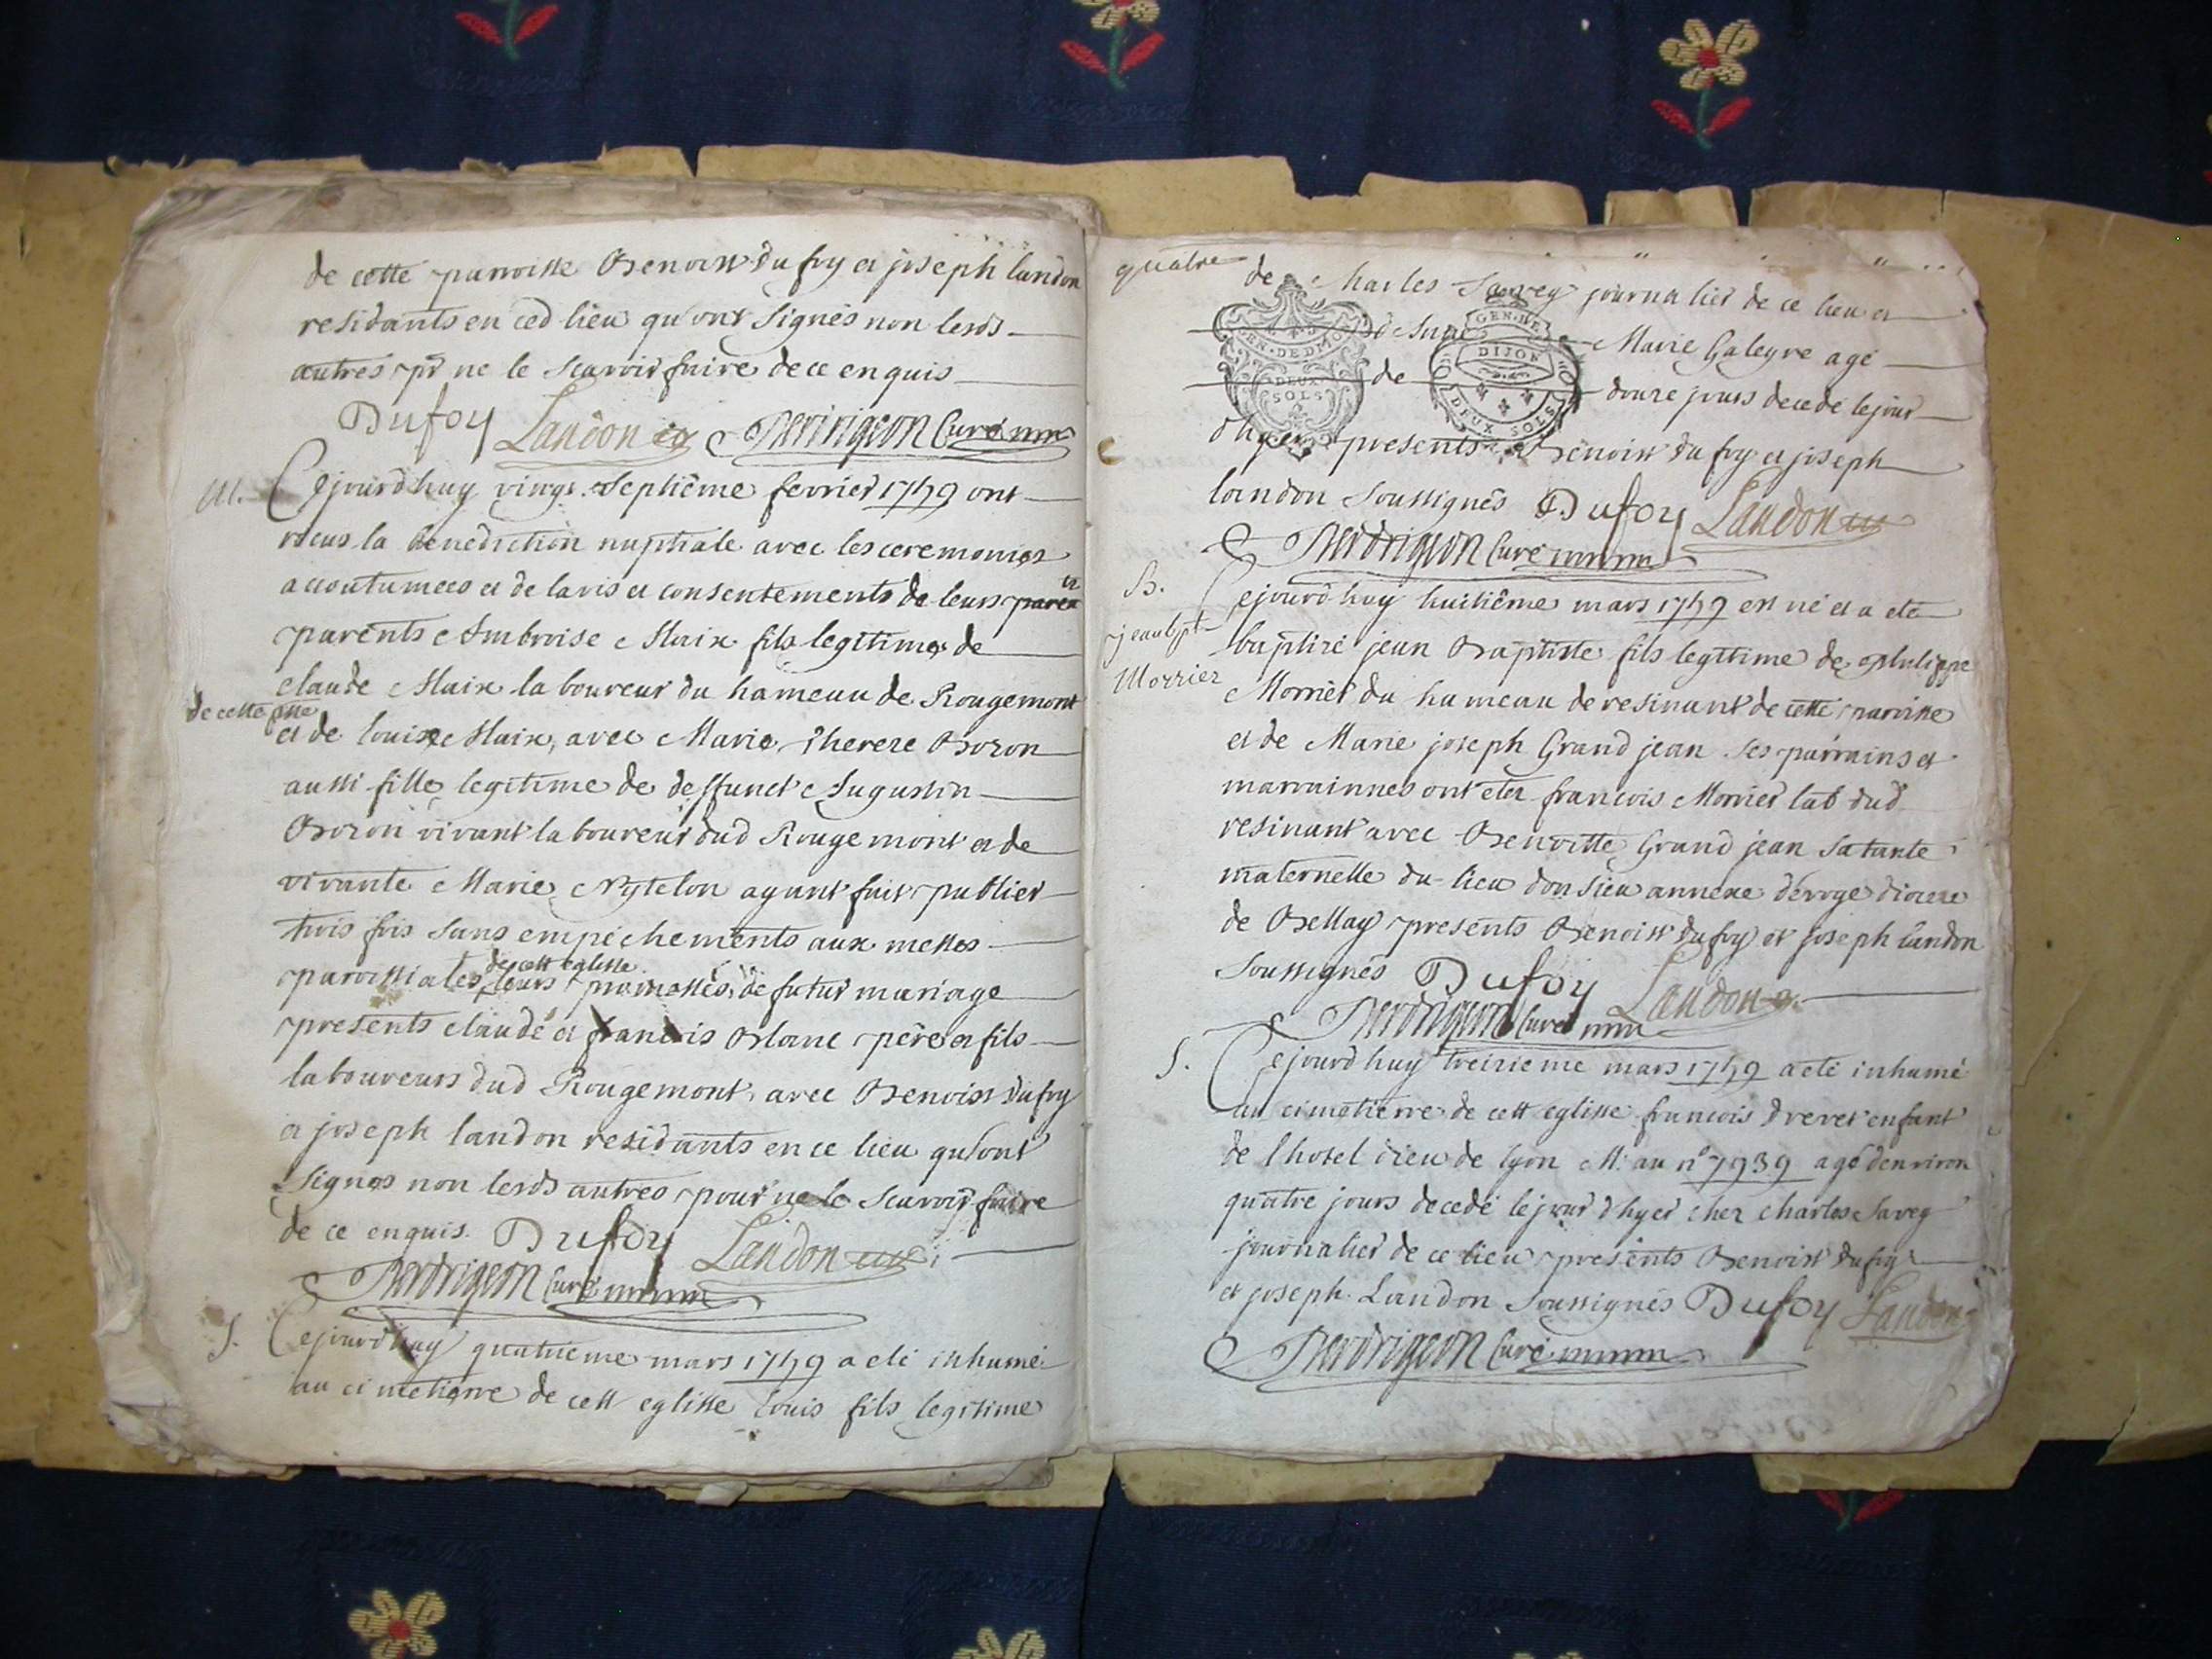 de cette parroisse Benoist Dufoy et joseph landon
residants en ced lieu qu'ont signés non lesds
autres pr ne le scavoir faire de ce enquis
Dufoy Landon Perdrigeon Curé
M. Cejourd'huy vingt septiême fevrier 1749 ont
recus la benediction nuptiale avec les ceremonies
accoutumees et de lavis et consentements de leurs
parents Ambroise Maix fils legitime de
claude Maix laboureur du hameau de Rougemont
de cette psse
et de louise Maix, avec Marie therese Bozon
aussi fille legitime de deffunct Augustin
Bozon vivant laboureur dud Rougemont et de
vivante Marie Nytelon ayant fait publier
trois fois sans empêchements aux messes
de cett eglisse
paroissiales leurs promesses de futur mariage
presents claude et francois Blanc père et fils
laboureurs dud Rougemont, avec Benoist Dufoy
et joseph landon residants en ce lieu qu'ont
signes non lesds autres pour ne le scavoir faire
de ce enquis. Dufoy Landon
Perdrigeon Curé
S. Cejourd'huy quatrieme mars 1749 a eté inhumé
au cimetierre de cett eglisse Louis fils legitime
quatre
de Charles Savey journalier de ce lieu et
de Marie Galeyre agé
GEN. DE DIJON DEUX SOLS
GEN. DE DIJON DEUX SOLS
de douze jours decedé le jour
d'hyer presents Benoist Dufoy et joseph
landon soussignés Dufoy Landon
Perdrigeon Curé
B.
jean bpt
Morrier
Cejourd'huy huitiême mars 1749 est né et a eté
baptizé jean Baptiste fils legitime de Philippe
Morrier du hameau de resinant de cette paroisse
et de Marie joseph Grand jean ses parrains et
marrainnes ont eté francois Morrier lab dud
resinant avec Benoitte Grand jean sa tante
maternelle du lieu donsieu annexe de voge dioceze
de Bellay presents Benoist Dufoy et joseph landon
soussignés Dufoy Landon
Perdrigeon Curé
S. Cejourd'huy treizieme mars 1749 a eté inhumé
au cimetierre de cett eglisse francois drevet enfant
de l'hotel dieu de lyon au n° 7939 agé d'environ
quatre jours decedé le jour d'hyer chez charles Savey
journalier de ce lieu presents Benoist Dufoy
et joseph Landon soussignés Dufoy Landon
Perdrigeon Curé